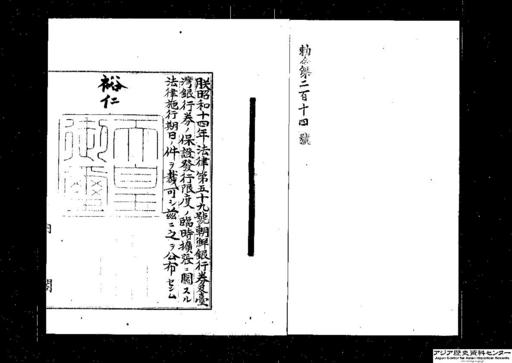 勅令第二百十四號
朕昭和十四年法律第五十九號朝鮮銀行券及臺
灣銀行券ノ保證發行限度ノ臨時擴張ニ關スル
法律施行期日ノ件ヲ裁可シ茲ニ之ヲ公布セシム
裕仁
天皇
御璽
内閣
アジア歴史資料センター
Japan Center for Asian Historical Records